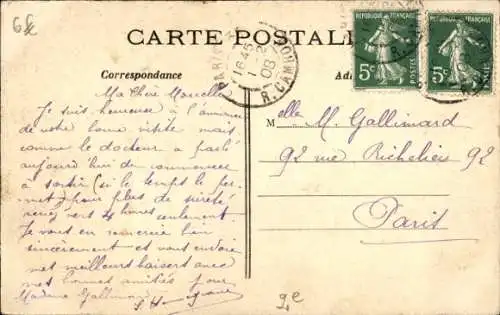 6f
CARTE POSTALE
Correspondance
RÉPUBLIQUE FRANÇAISE
5c POSTES
RÉPUBLIQUE FRANÇAISE
5c POSTES
PARIS
16 45
1 - 2
08
R. CAMB
Ma Chère Marcelle
Je suis heureuse de l'annonce
de votre bonne visite mais
comme le docteur a parlé
aujourd'hui de commencer
à sortir (si le temps le per-
met) pour plus de sûreté
venez vers 4 heures seulement
Je vous en remercie bien
sincèrement et vous envoie
mes meilleurs baisers avec
mes bonnes amitiés pour
Madame Gallimard
Melle M. Gallimard
92 rue Richelieu 92
Paris
2e